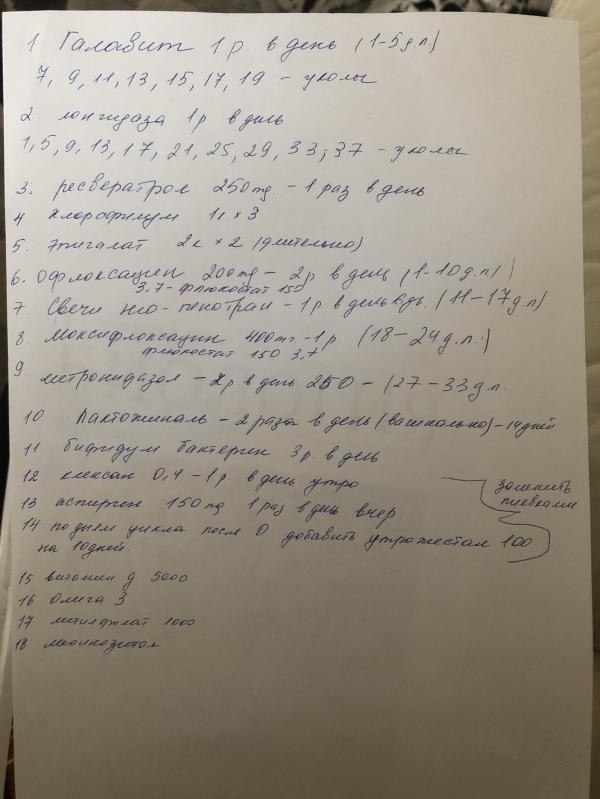 1 Галавит 1 р. в день (1-5 д.п.)
7, 9, 11, 13, 15, 17, 19 - уколы
2. лонгидаза 1р в день
1, 5, 9, 13, 17, 21, 25, 29, 33, 37 - уколы
3. ресвератрол 250mg - 1 раз в день
4 хлорофилум 1к x 3
5. эпигалат 2к x 2 (длительно)
6. Офлоксацин 200mg - 2р. в день (1-10 д.п)
3.7 - флюкостат 150
7 Свечи нео-пенотран - 1р в день вдн. (11-17д.п)
8 Моксифлоксацин 400mg. - 1р. (18-24 д.п.)
флюкостат 150 3,7
9 метронидазол - 2р в день 250 - (27-33д.п.
10 Лактожиналь - 2 раза в день (вагинально) - 14 дней
11 бифидум бактерин 3 р. в день
12 клексан 0,4 - 1р. в день утро
заменить
пиявками.
13 аспирин 150 mg 1 раз в день вчер.
14 по дням цикла после О добавить утрожестан 100
на 10дней.
15 витамин д 5000
16 Омега 3
17 метилфолат 1000
18 миоинозитол